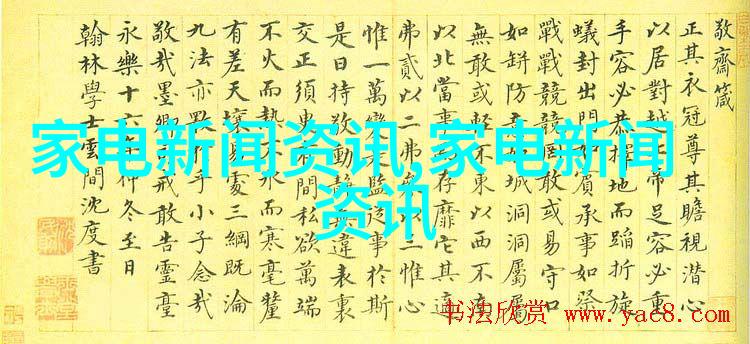 敬齋箴
正其衣冠尊其瞻視潛心
以居對越帝足容必重
手容必恭擇地而蹈折旋
蟻封出門如賓承事如祭
戰戰兢兢罔敢或易守口
如缾防城洞洞屬屬
無敢或輕不東以西不南
以北當事存靡它其適
弗貳以二弗以三惟心
惟一萬變是監從事於斯
是曰持敬動靜無違表裏
交正須臾間私欲萬端
不火而熱不冰而寒毫釐
有差天壤易處三綱既淪
九法亦乎小子念哉
敬哉墨卿戒敢告靈臺
永樂十六年仲冬至日
翰林學士雲間沈度書
家电新闻资讯,家电新闻
资讯
书法欣赏
www.yac8.com